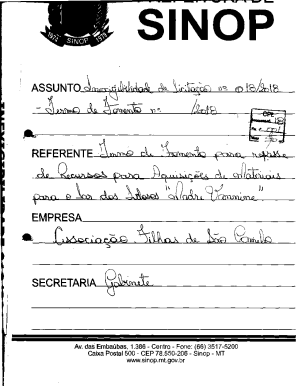 PREFEITURA DE
SINOP
1974 SINOP 1979
ASSUNTO Inexigibilidade de Licitação nº 018/2018
- Termo de Fomento nº /2018
CPL
REFERENTE Termo de Fomento para repasse
de Recursos para Aquisições de Materiais
para o Lar dos Idosos "Madre Vannine"
EMPRESA
Associação Filhas de São Camilo
SECRETARIA Gabinete
Av. das Embaúbas, 1.386 - Centro - Fone: (66) 3517-5200
Caixa Postal 500 - CEP 78.550-206 - Sinop - MT
www.sinop.mt.gov.br